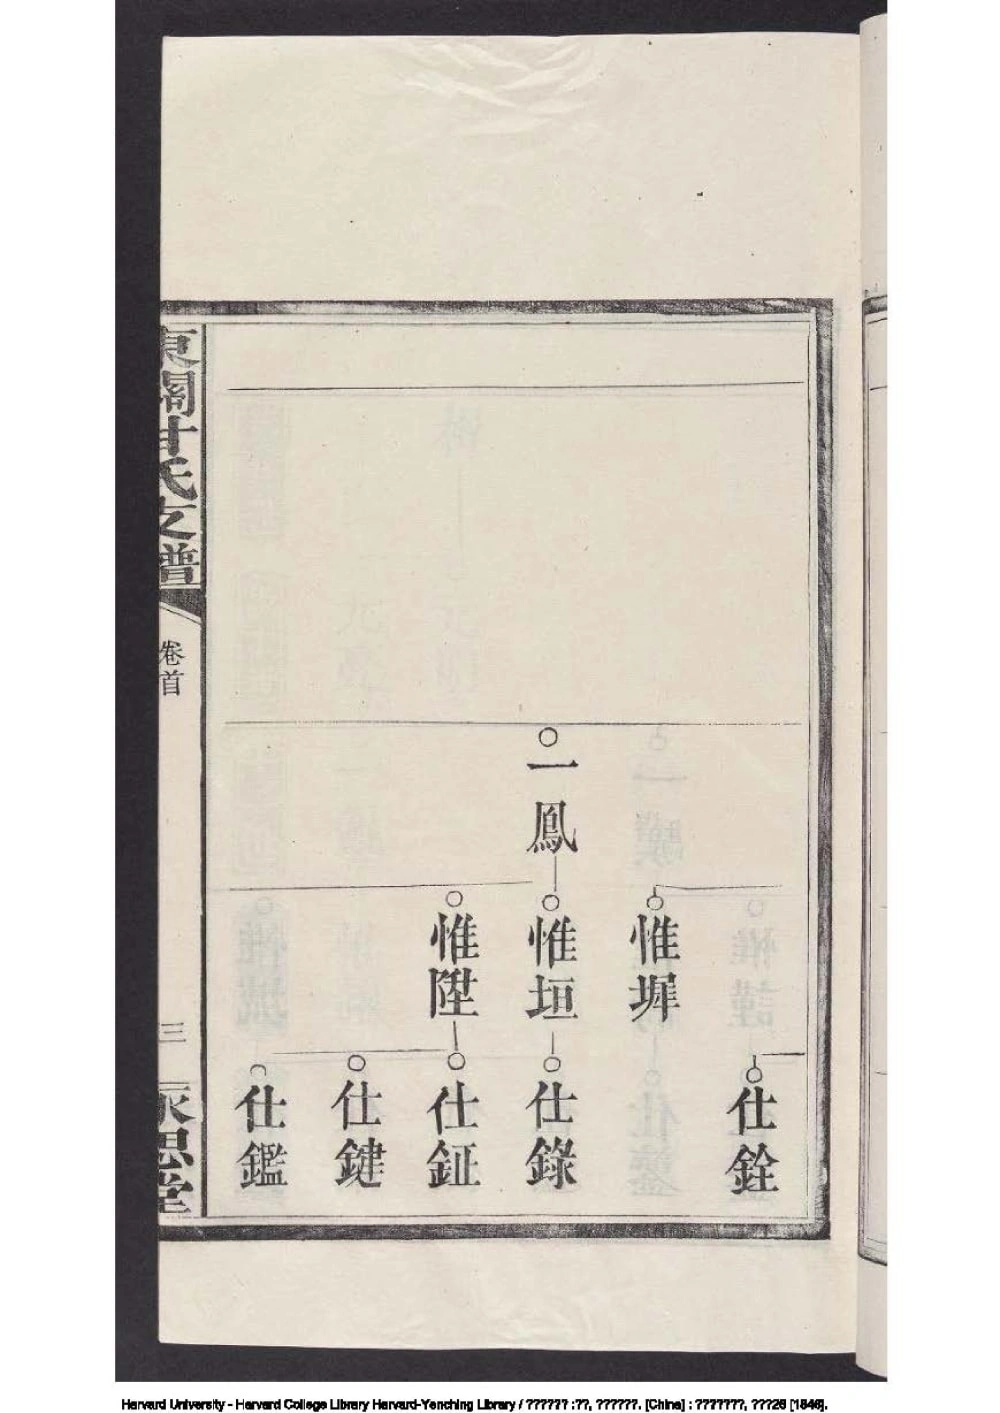 仕銓
惟墀
一鳳
惟垣
仕錄
惟陞
仕鉦
仕鍵
仕鑑
東關甘氏支譜
卷首
三
永思堂
Harvard University - Harvard College Library Harvard-Yenching Library / ?????? :??, ??????. [China] : ???????, ???26 [1846].